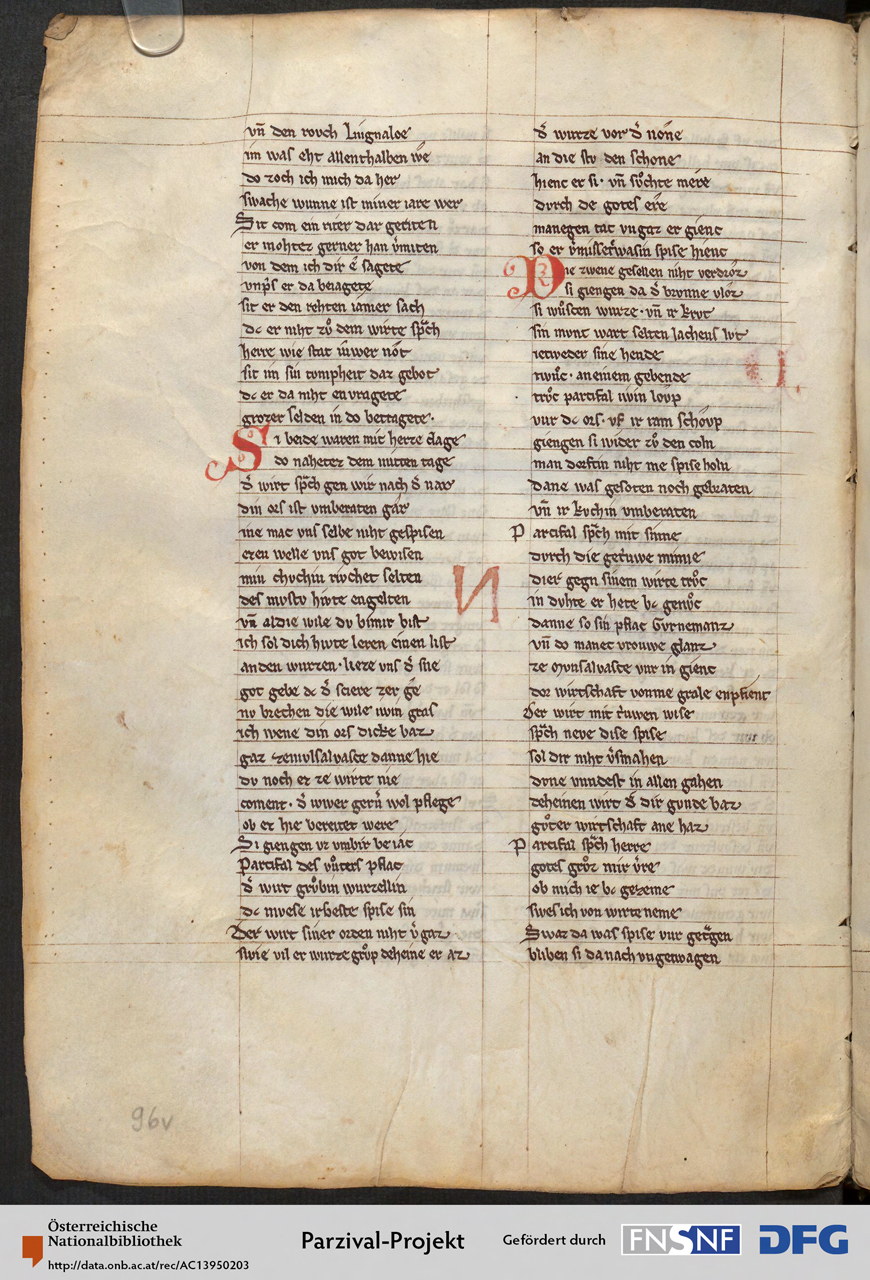 vn̄ den rovch Luignaloe
im was eht allenthalben we
do zoch ich mich da her
swache wunne ist miner iare wer
Sit com ein riter dar geriten
er mohtez gerner han v̾miten
von dem ich dir e sagete
vnp̄s er da beiagete
sit er den rehten iamer sach
dc er niht zvͦ dem wirte sp̄ch
herre wie stat iuwer not
sit im sin tompheit daz gebot
dc er da niht en vragete
grozer selden in do betragete.
Si beide waren mit herze clage
do nahetez dem mitten tage
d̾ wirt sp̄ch gen wir nach d̾ nar
din ors ist vmberaten gar
ine mac vns selbe niht gespisen
ezen welle vns got bewisen
min chvchin rivchet selten
des mvstv hivte engelten
vn̄ aldie wile dv bimir bist
ich sol dich hivte leren einen list
an den wurzen. lieze vns d̾ sne
got gebe dc d̾ sciere zer ge
nv brechen die wile iwin gras
ich wene din ors dicke baz
gaz zemvlsalvasce danne hie
dv noch ez ze wirte nie
coment. d̾ iwer gern̄ wol pflege
ob ez hie bereitet were
Si giengen vz vmbir beiac
Parcifal des vvͦters pflac
d̾ wirt grvͦbin wurzellin
dc mvese ir beste spise sin
Der wirt siner orden niht v̾gaz
swie vil er wurze grvͦp deheine er az
d̾ wurze vor d̾ none
an die stv den schone
hienc er si. vn̄ svͦchte mere
dvrch de gotes ere
manegen tac vngaz er gienc
so er v̾misset wasin spise hienc
Die zwene gesellen niht verdroz
si giengen da d̾ brvnne vloz
si wvͦschen wurze. vn̄ ir krvt
sin mvnt wart selten lachens lvt
ietweder sine hende
twuͦc. an einem gebende
trvͦc parcifal iwin lovp
vur dc ors. vf ir ram schovp
giengen si wider zvͦ den coln
man dorftin niht me spise holn
dane was gesoten noch gebraten
vn̄ ir kvchin vmberaten
Parcifal sp̄ch mit sinne
dvrch die getruwe minne
dier gegn sinem wirte trvͦc
in dvhte er hete bc genvͦc
danne so sin pflac Gvrnemanz
vn̄ do manec vrouwe glanz
ze mvnsalvasce vur in gienc
dor wirtschaft vonme grale enpfienc
Der wirt mit truwen wise
sp̄ch neve dise spise
sol dir niht v̾smahen
dvne vundest in allen gahen
deheinen wirt d̾ dir gunde baz
gvͦter wirtschaft ane haz
Parcifal sp̄ch herre
gotes grvͦz mir v̾re
ob mich ie bc gezeme
swes ich von wirte neme
Swaz da was spise vur getragen
bliben si da nach vngetwagen
N
96v
Österreichische
Nationalbibliothek
http://data.onb.ac.at/rec/AC13950203
Parzival-Projekt
Gefördert durch
FNSNF
DFG